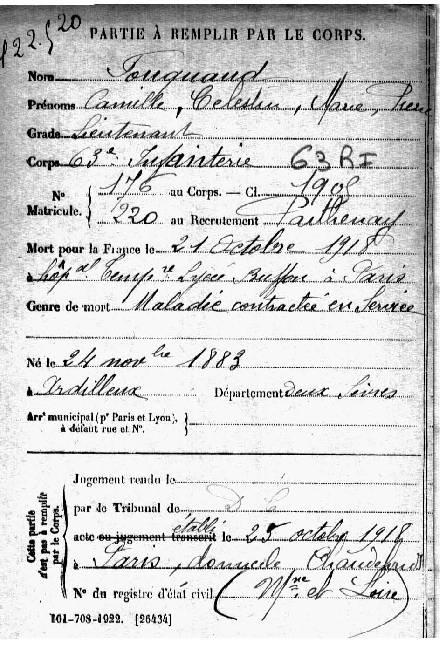 122.520
PARTIE À REMPLIR PAR LE CORPS.
Nom Fouquaud
Prénoms Camille, Celestin, Marie, Pierre
Grade Lieutenant
Corps 63e Infanterie 63 RI
N° Matricule. { 176 au Corps. — Cl. 1903
220 au Recrutement Parthenay
Mort pour la France le 21 Octobre 1918
à hôpal Tempre Lycée Buffon à Paris
Genre de mort Maladie contractée en Service
Né le 24 novbre 1883
à Ardilleux Département deux Sèvres
Arrt municipal (pr Paris et Lyon), à défaut rue et N°. }
Cette partie n'est pas à remplir par le Corps. {
Jugement rendu le
par de Tribunal de
établi
acte ou jugement transcrit le 25 octobre 1918
à Paris, domicile
N° du registre d'état civil (Mne et Loire)
161-708-1922. [26434]